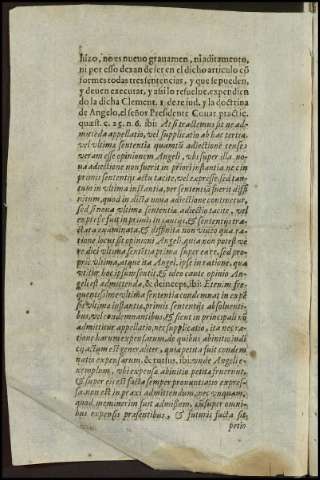 hizo, no es nuevo granamen, ni aditamento,
ni por esso dexan de ser en el dicho articulo cõ
formes todas tres sentencias, y que se pueden,
y deuen executar, y assi lo resuelue, expendien
do la dicha Clement. 1. de re iud. y la doctrina
de Angelo, el señor Presidente Couar. practic.
quæst. c. 25. n. 6. ibi At si tractemus si ne ad-
mittẽda appellatio, vel supplicatio ab hac tertia,
vel vltima sententia quantũ adiectionẽ tense-
veram esse opinionem Angeli, vbi super illa no-
ua adiectione non fuerit in priori instantia, nec in
primis sententijs actu tacite, vel expresse, sed tan-
tum in vltima instantia, per sententiã fuerit diffi
nitum, quod in dicta noua adiectione continetur,
sed si noua vltima sententia adiectio tacite, vel
expresse fuit in primis in iudicijs, & sententijs tra-
ctata examinata, & diffinita non video qua ra-
tione locus sit opinioni Angeli, quia non potest ve
re dici vltima sentẽtia prima super ea re, sed pro-
prie vltima, atque ita Angel. ipse intra
vt
geli est admittenda, & deinceps, ibi: Etenim fre
quentissime vltima sententia condemnat in expẽ
sis vltima instantiæ, primis sententijs absoluenti-
bus, vel condemnantibus, & si ent in principali nũ
admittitur appellatio, nec supplicatio, ita nec ra-
tione harum expensarum, de quibus ab initio iudi
cij actum est generaliter, quia petita fuit condem
natio expensarum, & rursus, ibi: vnde Angeli e-
xemplum, vbi expensa ab initio petita fuerunt,
& super eis est facta semper pronuntiatio expres-
sa non est in praxi admittendum, nec vnquam,
quod meminerim fuit admissum, cũ super omni-
bus expensis præsentibus, & futuris facta sit
petio